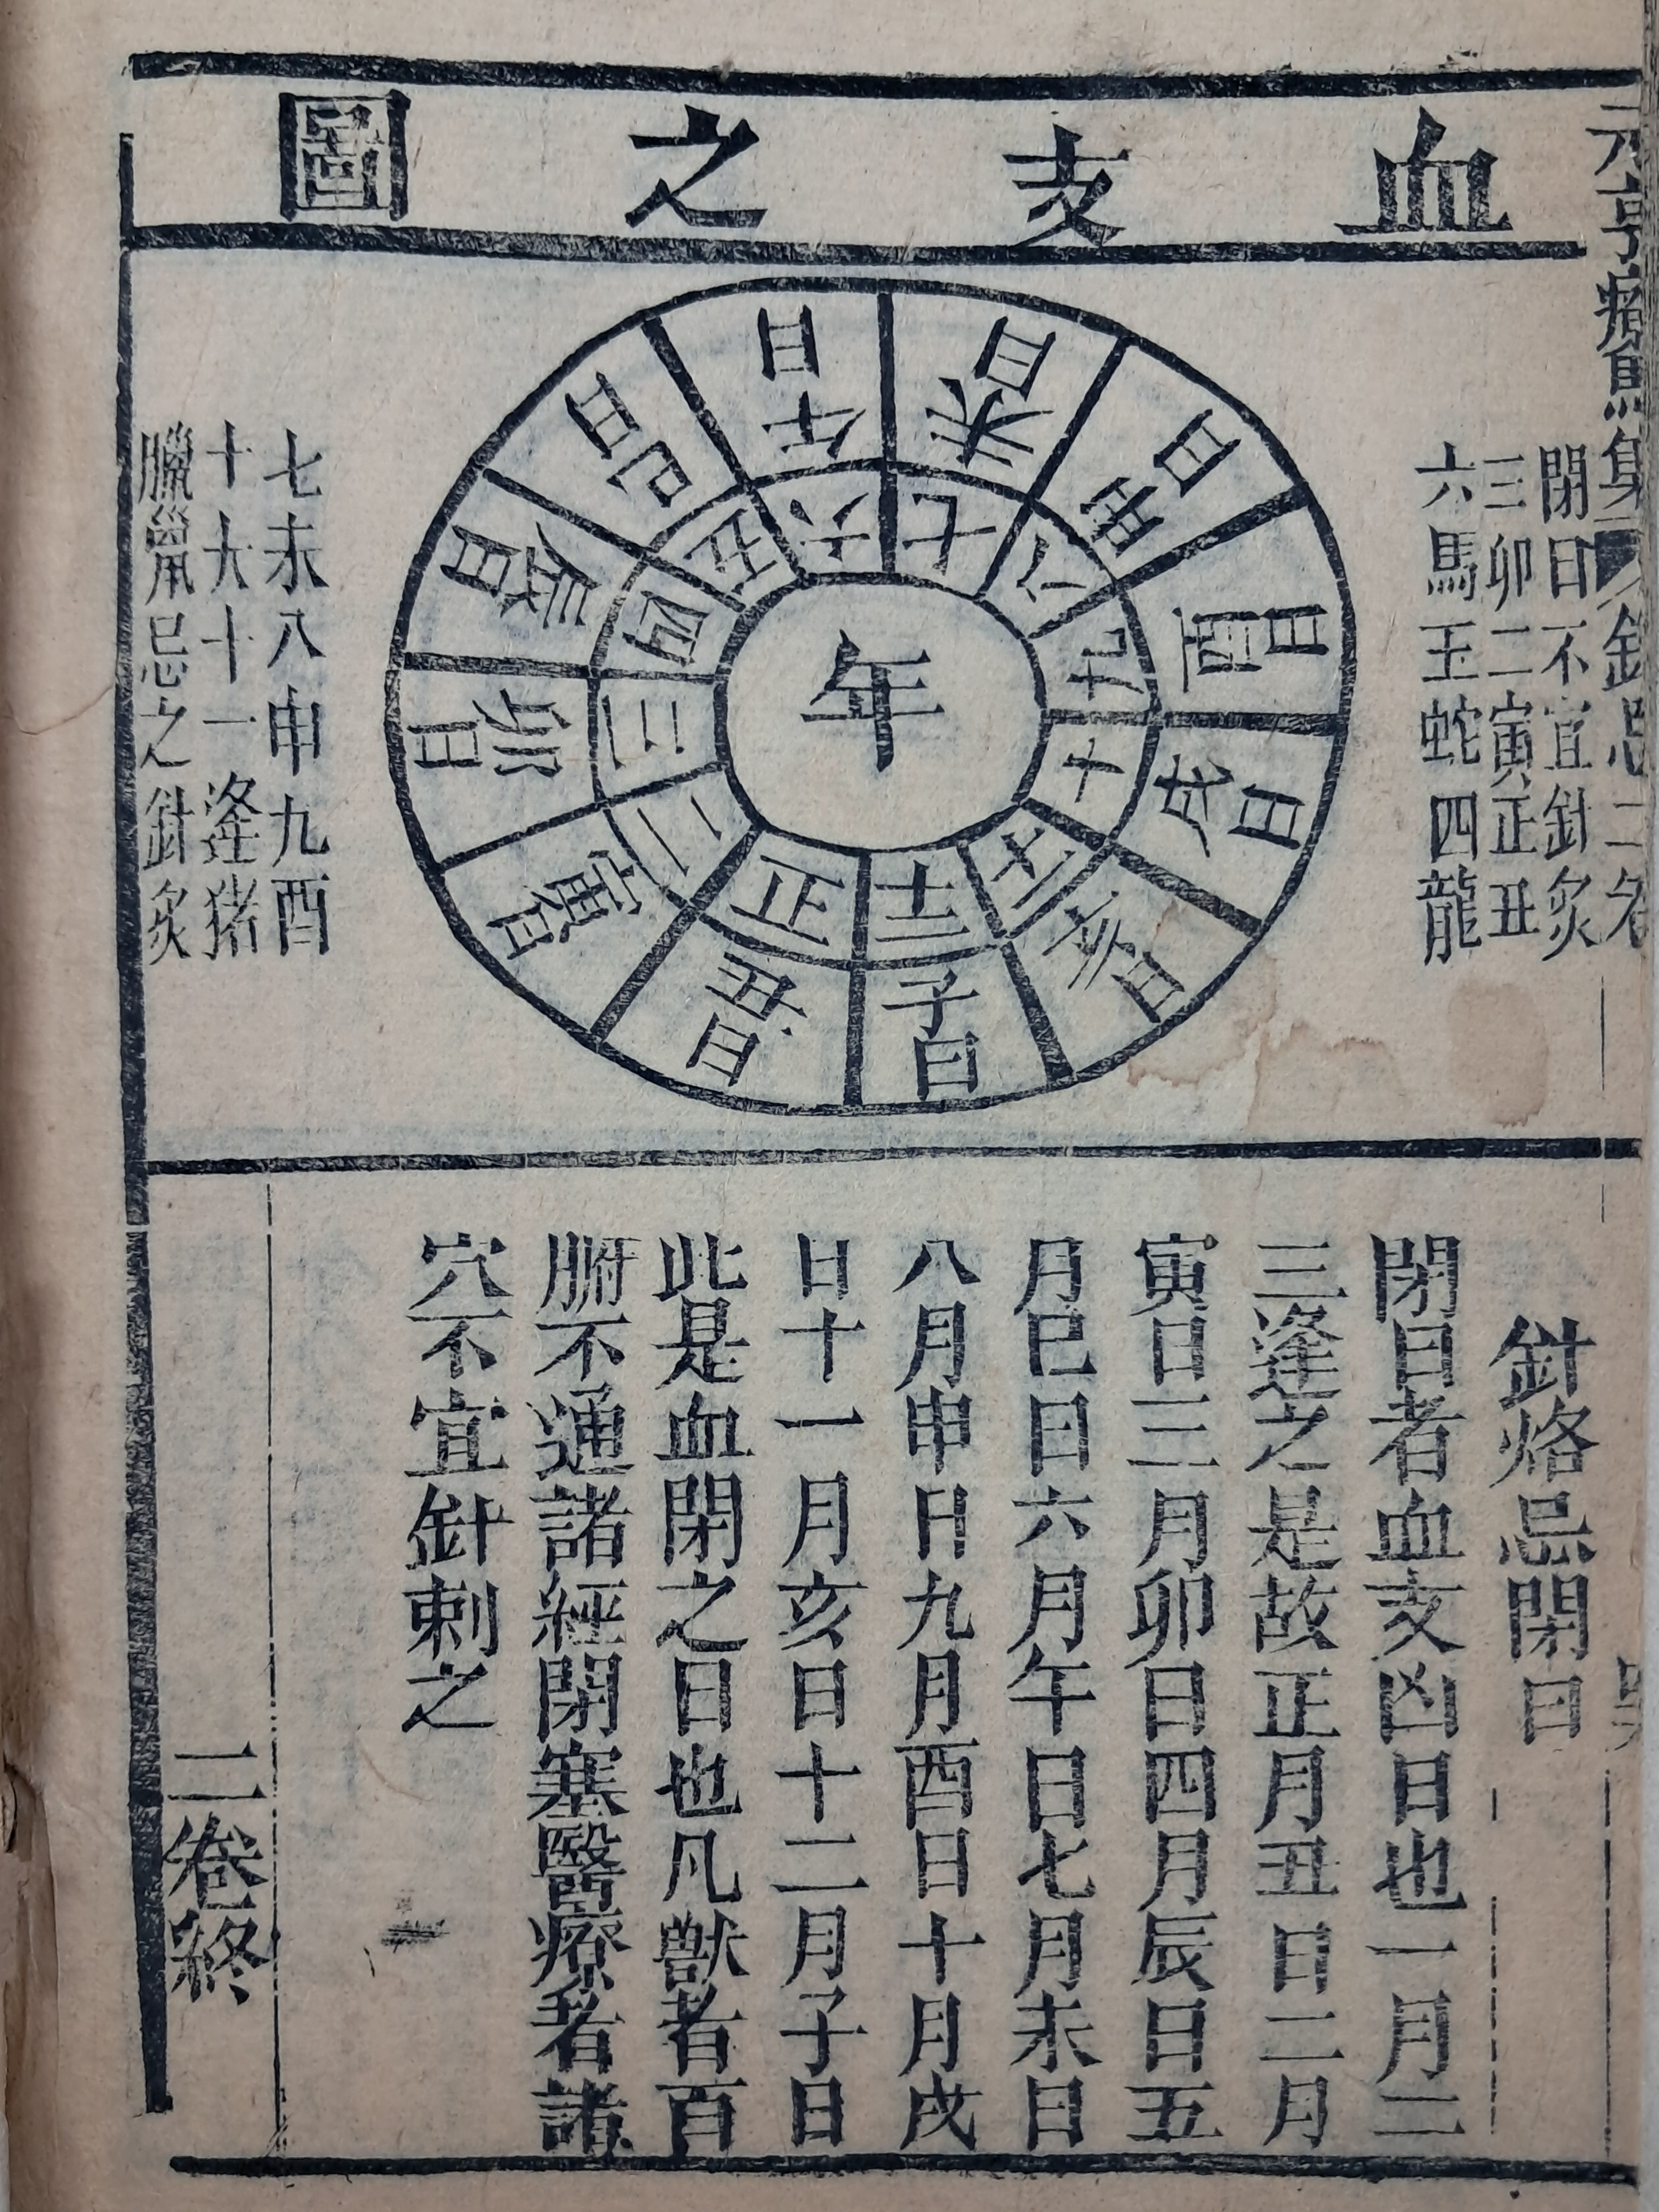 血支之圖
元亨療馬集
閉日不宜針炙
三卯二寅正丑
六馬玉蛇四龍
年
正 丑日
二 寅日
三 卯日
四 辰日
五 巳日
六 午日
七 未日
八 申日
九 酉日
十 戌日
十一 亥日
十二 子日
七未八申九酉
十犬十一逢猪
臘鼠忌之針炙
針烙忌閉日
閉日者血支凶日也一月二
三逢之是故正月丑日二月
寅日三月卯日四月辰日五
月巳日六月午日七月未日
八月申日九月酉日十月戌
日十一月亥日十二月子日
此是血閉之日也凡獸者百
腑不通諸經閉塞醫療者諸
穴不宜針刺之
二卷終